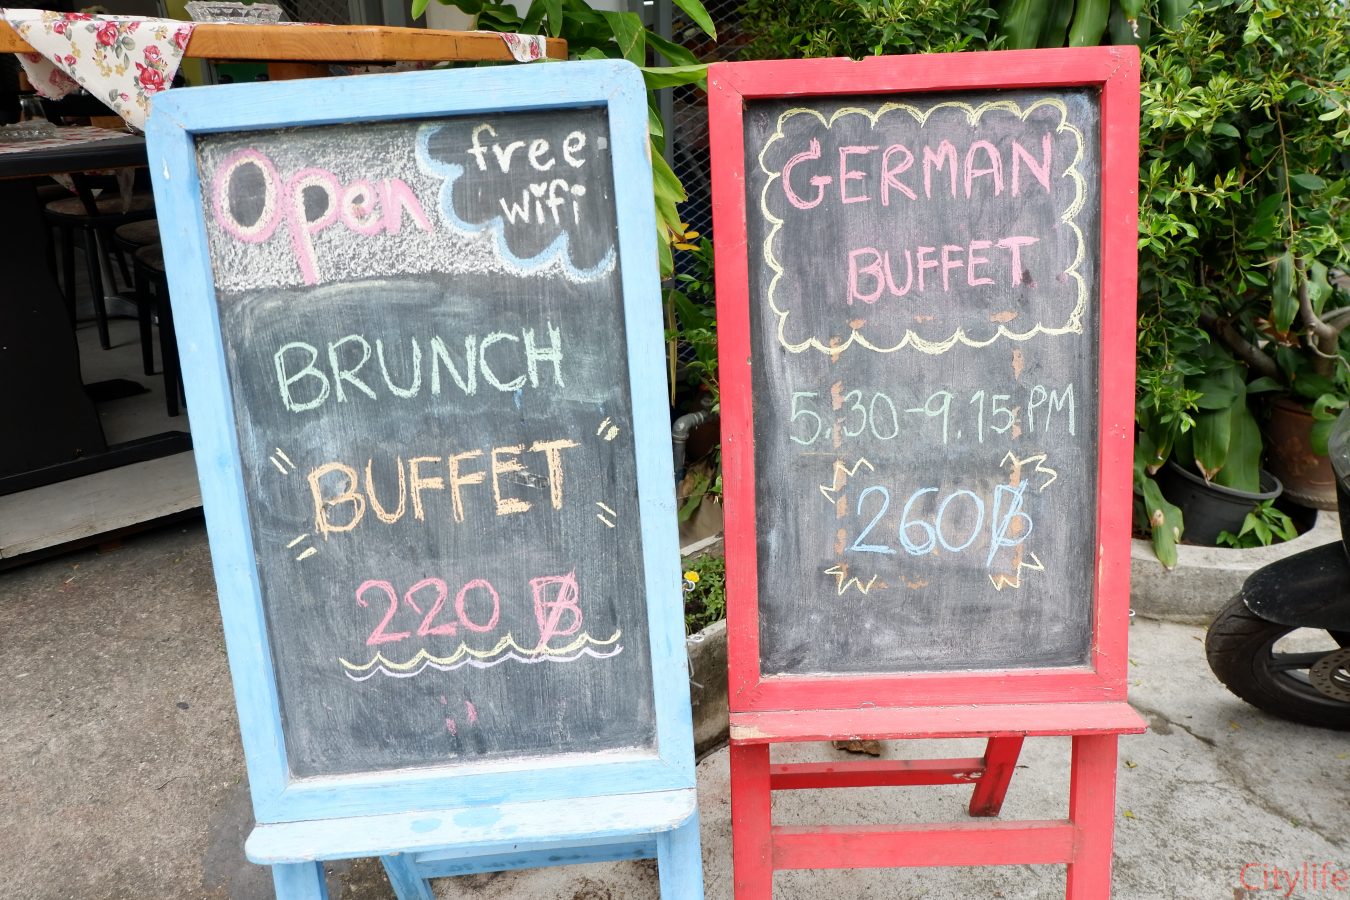 Open
free
wifi
BRUNCH
BUFFET
220 ฿
GERMAN
BUFFET
5.30-9.15 PM
260฿
Citylife